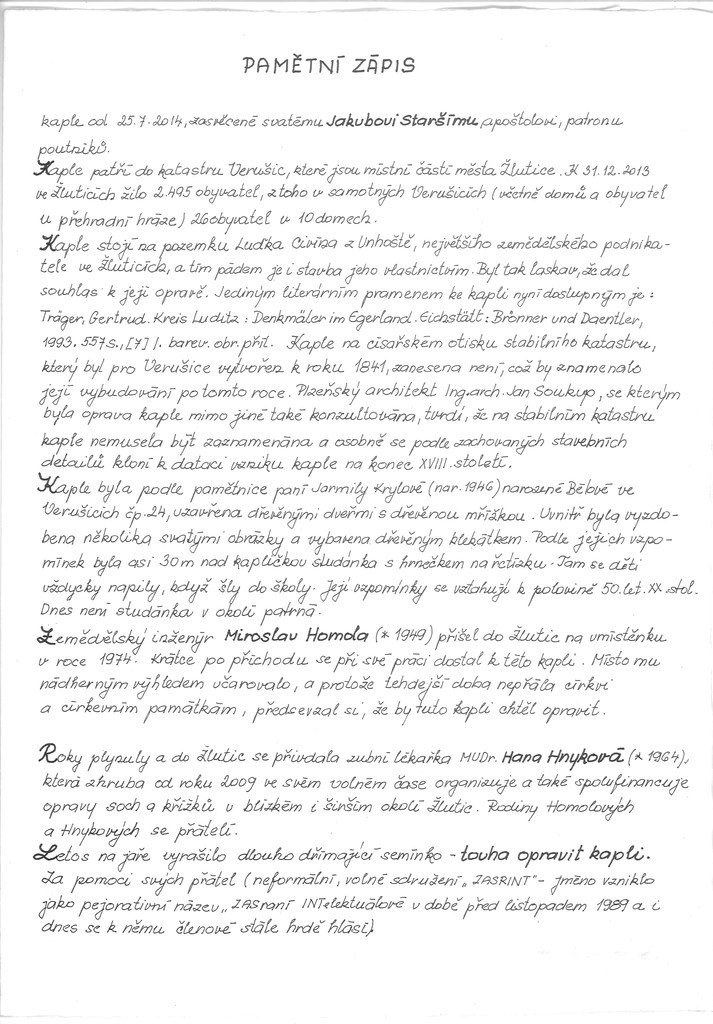 PAMĚTNÍ ZÁPIS
kaple od 25.7.2014, zasvěcené svatému Jakubovi Staršímu, apoštolovi, patronu
poutníků.
Kaple patří do katastru Verušic, které jsou místní částí města Žlutice. K 31.12.2013
ve Žluticích žilo 2.495 obyvatel, z toho v samotných Verušicích (včetně domů a obyvatel
u přehradní hráze) 26 obyvatel v 10 domech.
Kaple stojí na pozemku Luďka Civína z Unhoště, největšího zemědělského podnika-
tele ve Žluticích, a tím pádem je i stavba jeho vlastnictvím. Byl tak laskav, že dal
souhlas k její opravě. Jediným literárním pramenem ke kapli nyní dostupným je:
Träger, Gertrud. Kreis Luditz: Denkmäler im Egerland. Eichstätt: Brönner und Daentler,
1993. 557 s., [7] l. barev. obr. příl. Kaple na císařském otisku stabilního katastru,
který byl pro Verušice vytvořen k roku 1841, zanesena není, což by znamenalo
její vybudování po tomto roce. Plzeňský architekt Ing. arch. Jan Soukup, se kterým
byla oprava kaple mimo jiné také konzultována, tvrdí, že na stabilním katastru
kaple nemusela být zaznamenána a osobně se podle zachovaných stavebních
detailů kloní k dataci vzniku kaple na konec XVIII. století.
Kaple byla podle pamětnice paní Jarmily Krylové (nar. 1946) narozené Bělové ve
Verušicích čp. 24, uzavřena dřevěnými dveřmi s dřevěnou mřížkou. Uvnitř byla vyzdo-
bena několika svatými obrázky a vybavena dřevěným klekátkem. Podle jejích vzpo-
mínek byla asi 30 m nad kapličkou studánka s hrnečkem na řetízku. Tam se děti
vždycky napily, když šly do školy. Její vzpomínky se vztahují k polovině 50. let. XX. stol.
Dnes není studánka v okolí patrná.
Zemědělský inženýr Miroslav Homola (* 1949) přišel do Žlutic na umístěnku
v roce 1974. Krátce po příchodu se při své práci dostal k této kapli. Místo mu
nádherným výhledem učarovalo, a protože tehdejší doba nepřála církvi
a církevním památkám, předsevzal si, že by tuto kapli chtěl opravit.
Roky plynuly a do Žlutic se přivdala zubní lékařka MUDr. Hana Hnyková (* 1964),
která zhruba od roku 2009 ve svém volném čase organizuje a také spolufinancuje
opravy soch a křížků v blízkém i širším okolí Žlutic. Rodiny Homolových
a Hnykových se přátelí.
Letos na jaře vyrašilo dlouho dřímající semínko - touha opravit kapli.
Za pomoci svých přátel (neformální, volné sdružení „ZASRINT" - jméno vzniklo
jako pejorativní název „ZASraní INTelektuálové v době před listopadem 1989 a i
dnes se k němu členové stále hrdě hlásí)